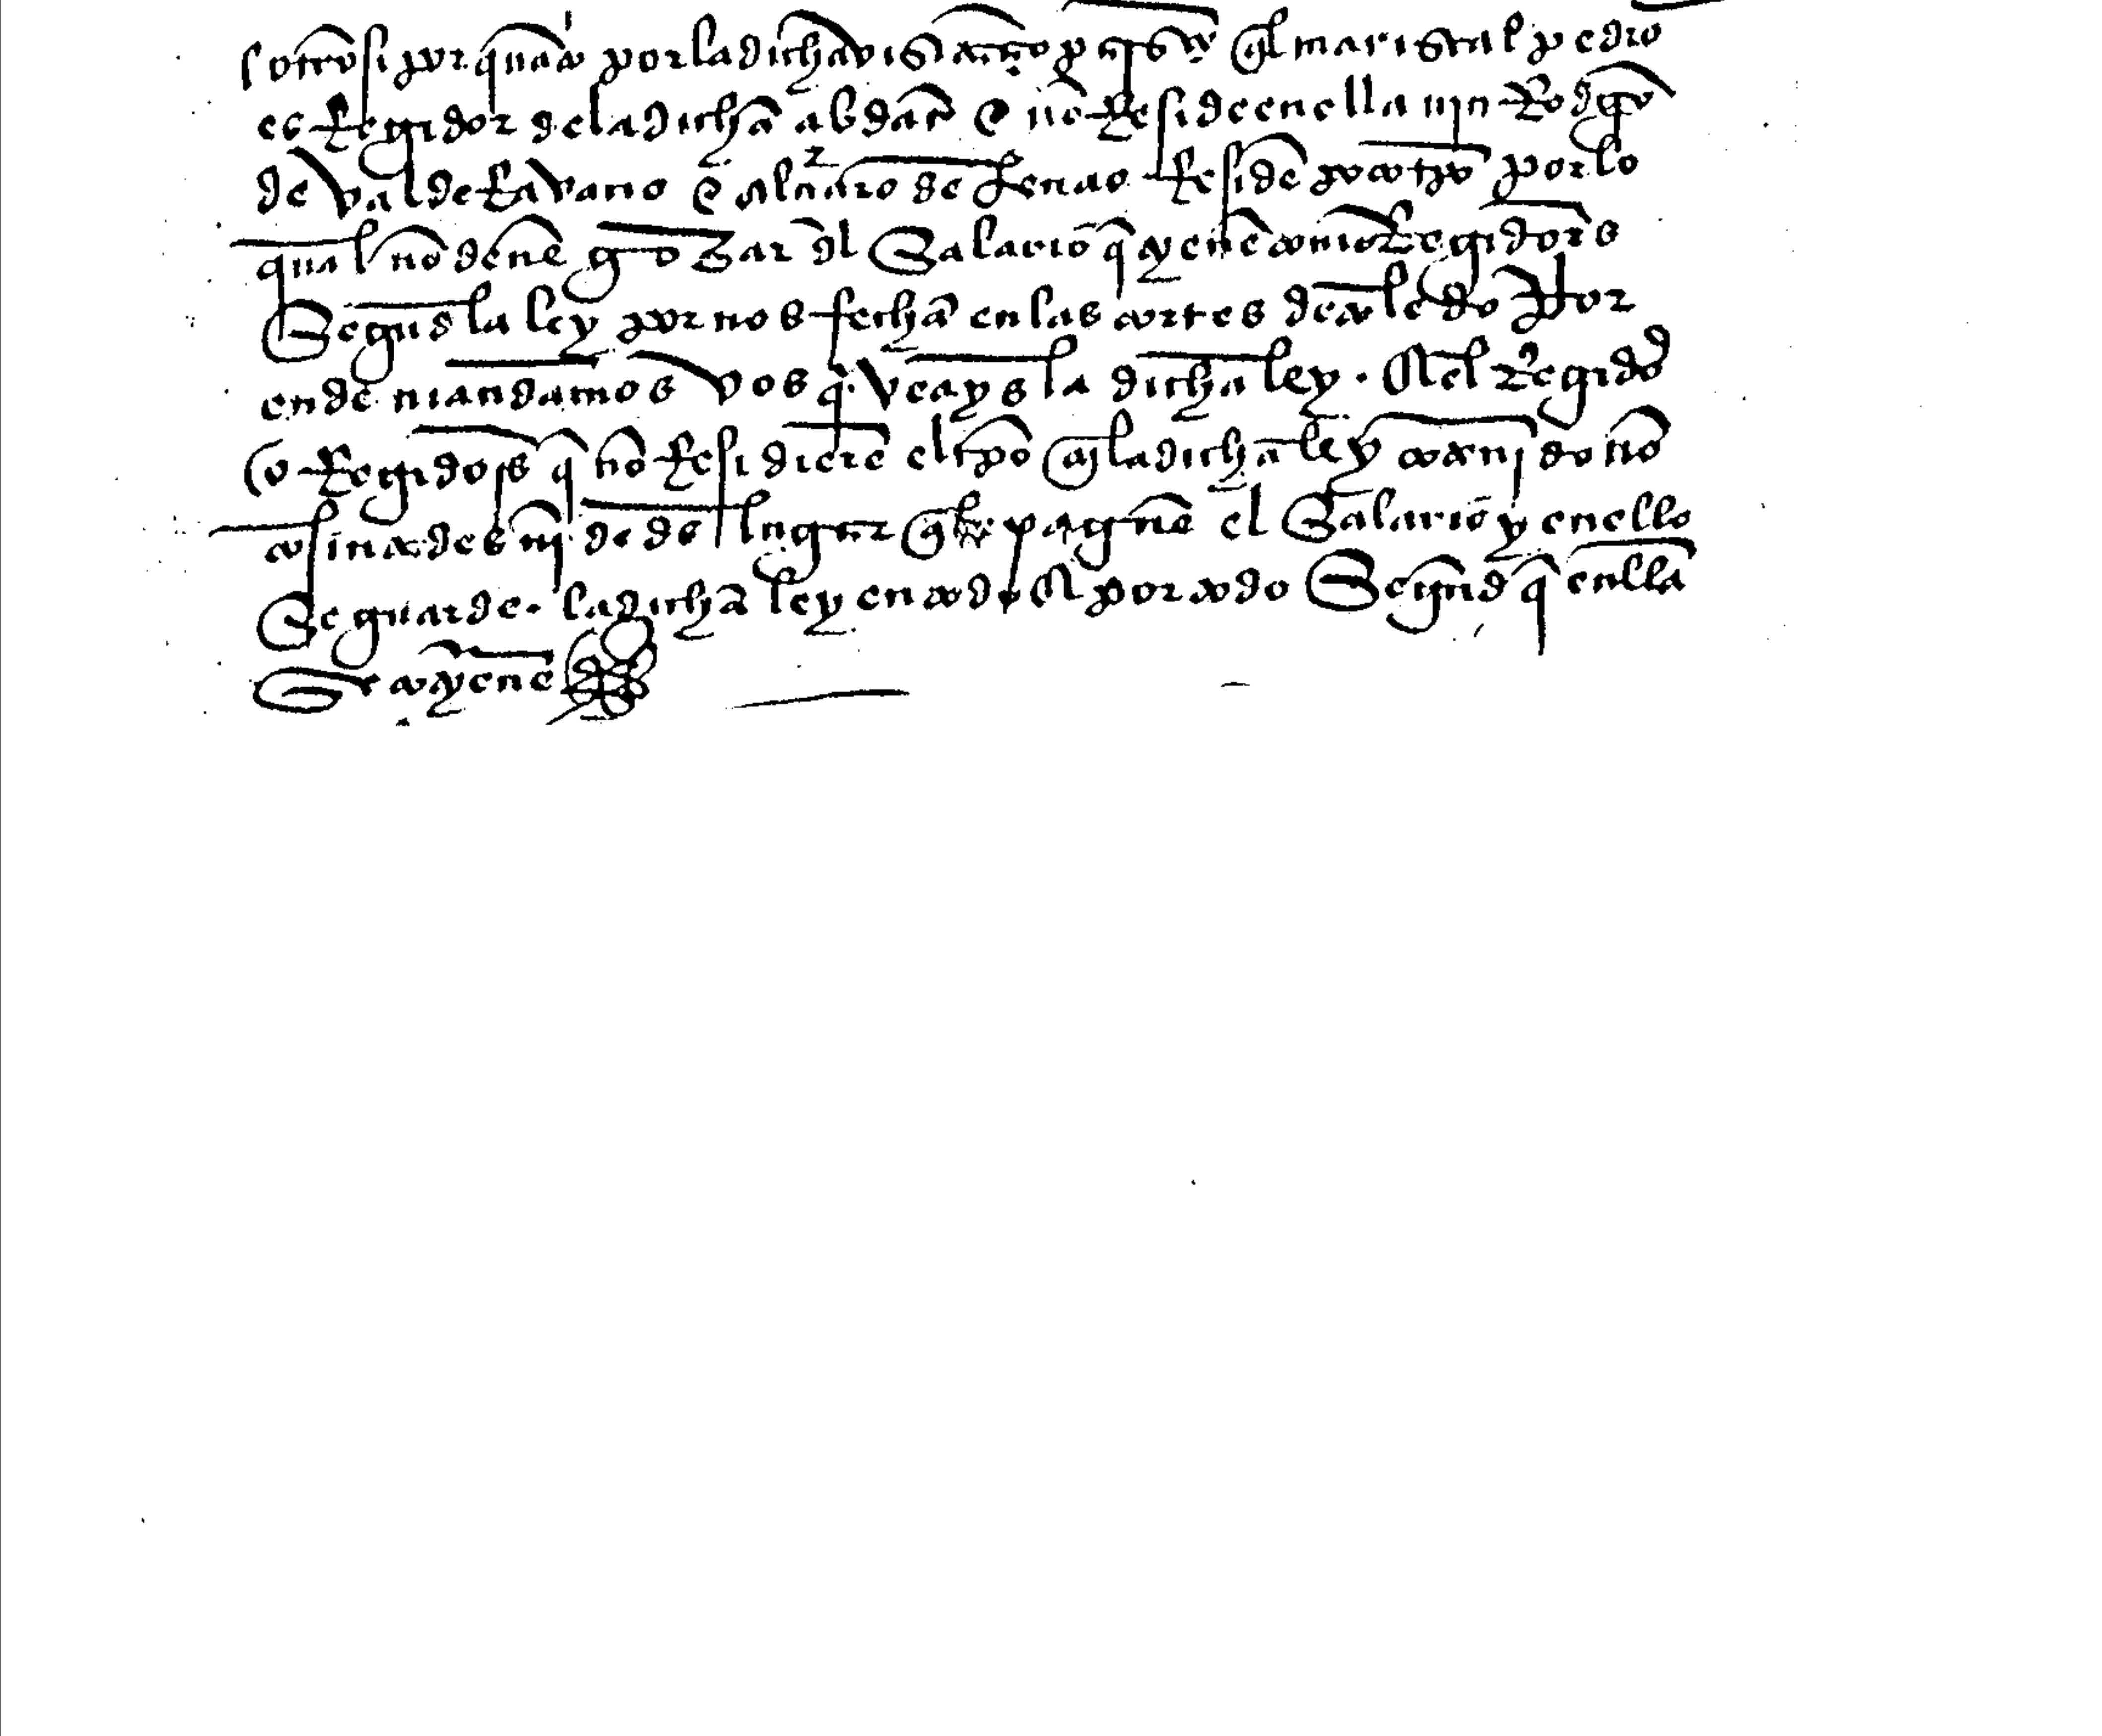 otrosi por quāto por la dicha visitaçiō pareçio q̄l mariscal pedro
es Regidor de la dicha çibdad e nō Reside en ella njn Rodgo
de valderravano e alvaro de henao Residē poco tpo por lo
qual nō devē gozar dl Salario q̄ tienē como Regidores
Segund la ley por nos fecha en las cortes de toledo Por
ende mandamos vos q̄ veays la dicha ley . A el Regidor
o Regidores q̄ nō Residierē el tpo en la dicha ley contenjdo nō
consintades nj dedes lugar q̄ le paguē el Salario y en ello
Se guarde . la dicha ley en todo e por todo Segund q̄ en ella
Se contiene